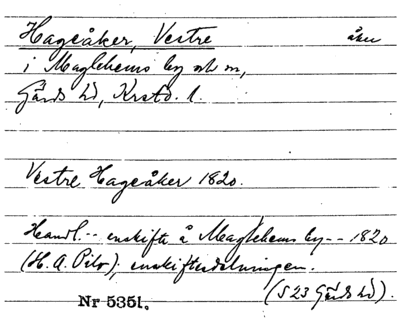 Hageåker, Vestre åker
i Maglehems by o s n,
Gärds hd, Krstd. l.
Vestre Hageåker 1820.
Handl. -- enskifte å Maglehems by -- 1820
(H. A. Pilo), enskiftesdelningen.
(S 23 Gärds hd).
Nr 5351.